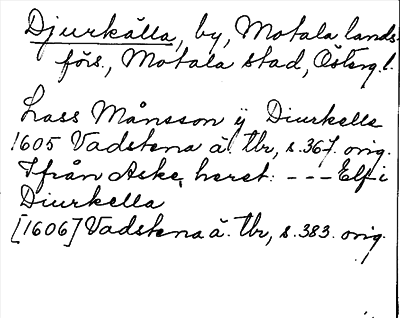 Djurkälla, by, Motala lands-
förs., Motala stad, Östergl.
Lass Månsson ÿ Diurkella
1605 Vadstena ä. tbr, s. 367. orig.
Ifrån Aske, heret: --- Elf i
Diurkella
[1606] Vadstena ä. tbr, s. 383. orig.